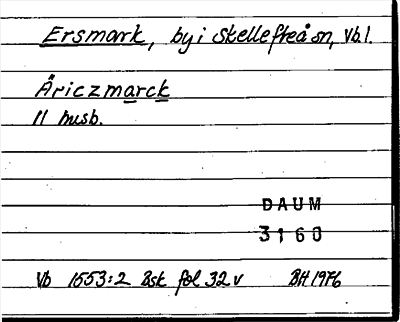 Ersmark, by i Skellefteå sn, Vb.l.
Äriczmarck
11 husb.
DAUM
3160
Vb 1553:2 Bsk fol 32 v BH 1976